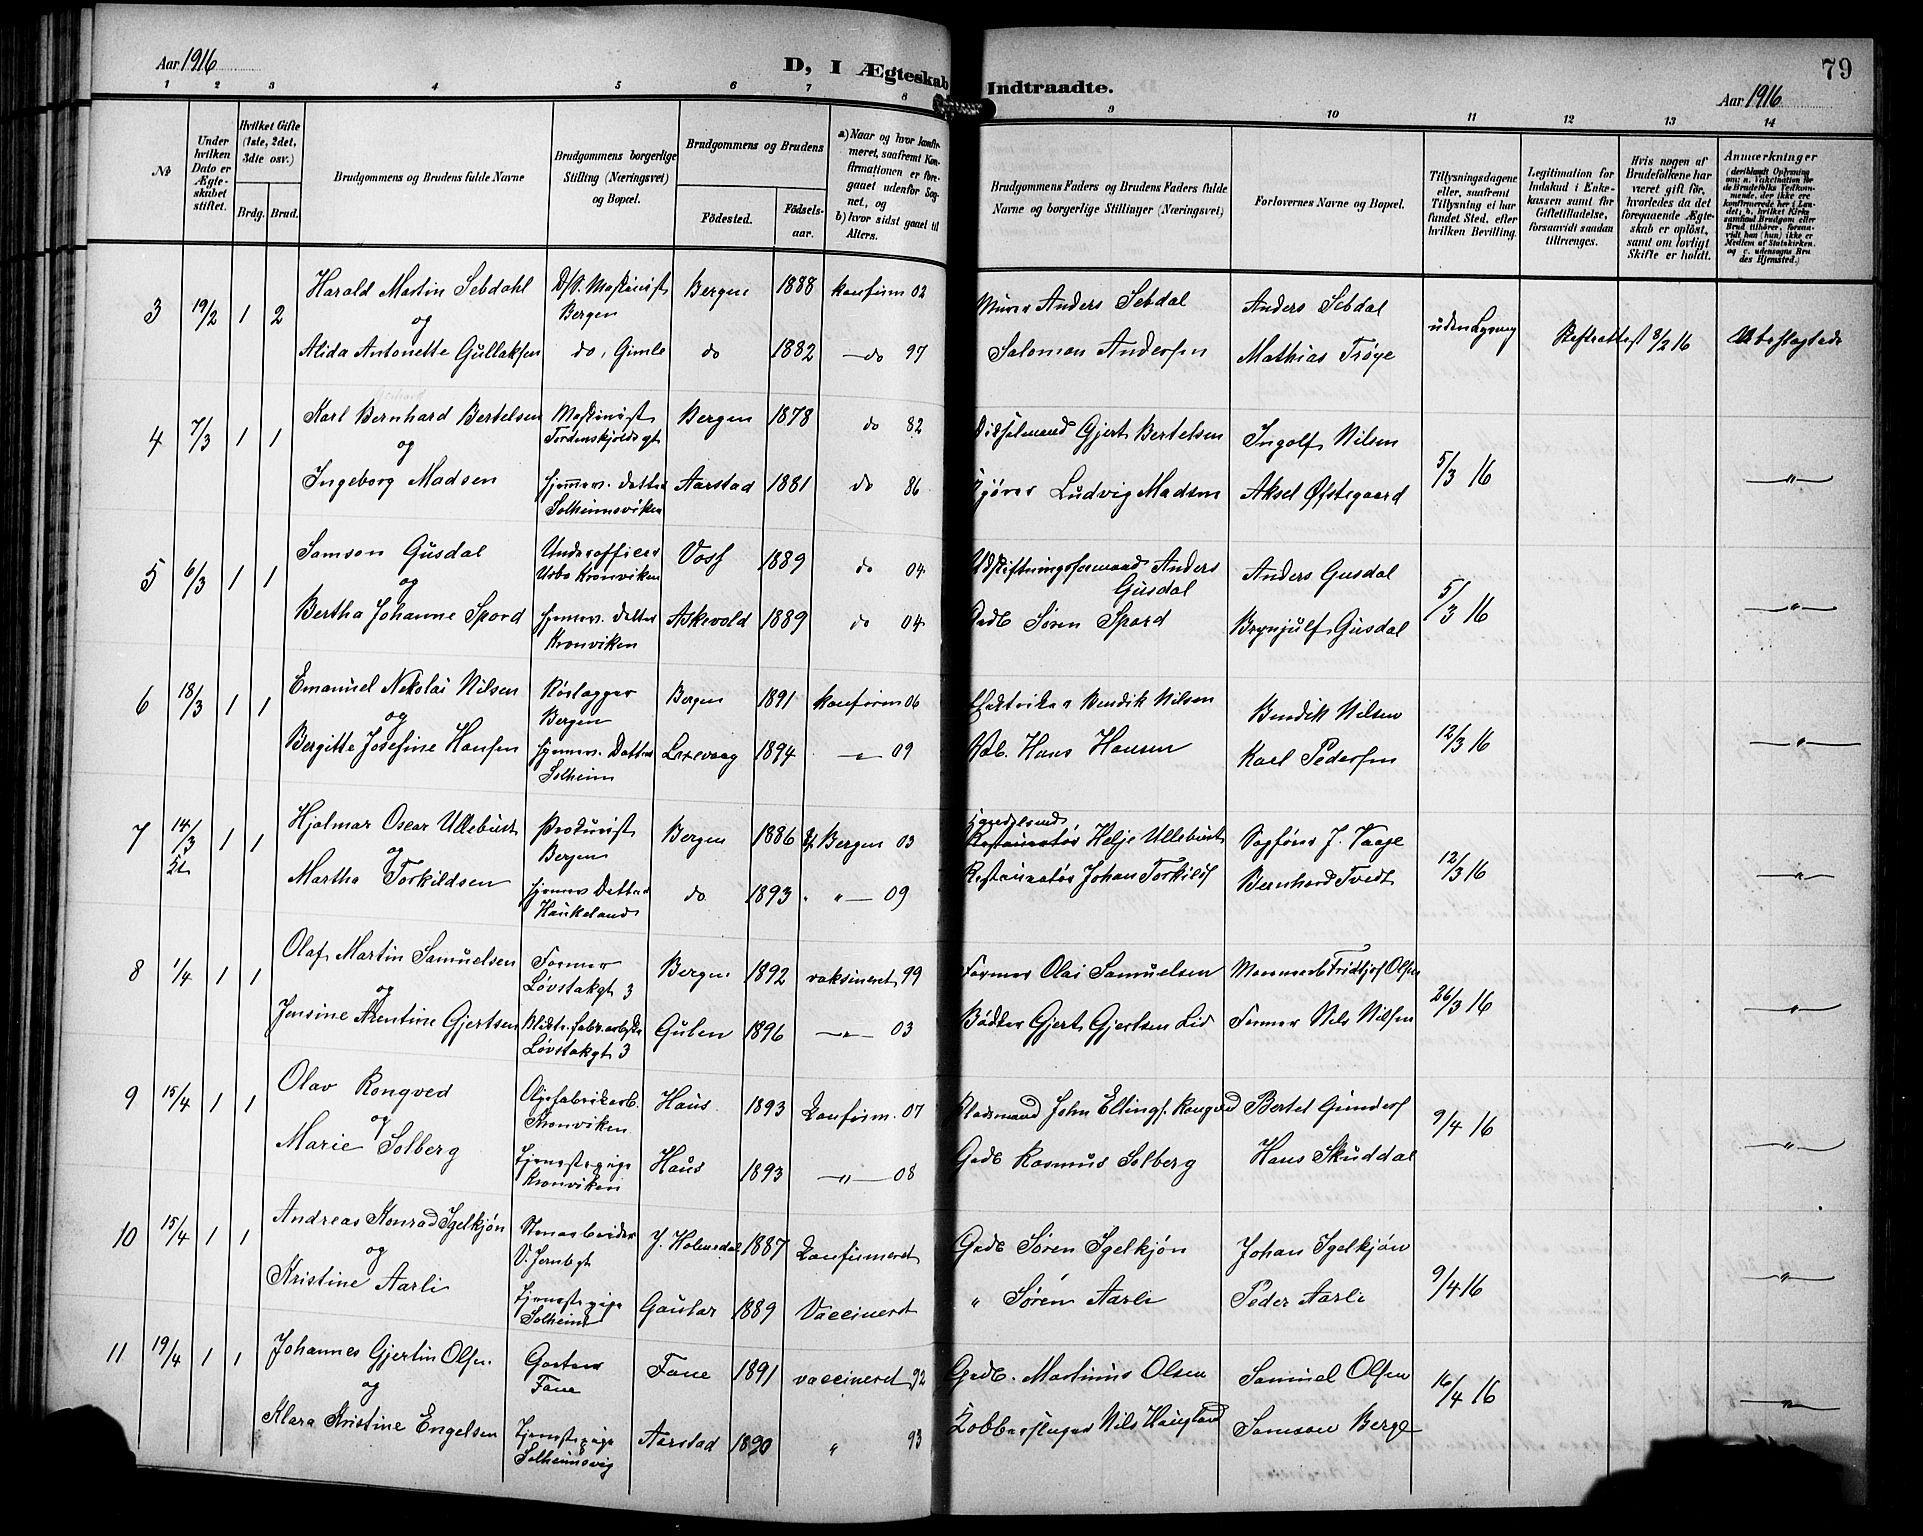 Aar 1916
D, I Ægteskab Indtraadte.
79
Aar 1916
1 2 3 4 5 6 7 8 9 10 11 12 13 14
No
Under hvilken Dato er Ægteskabet stiftet.
Hvilket Gifte (1ste, 2det, 3die osv.)
Brdg. Brud.
Brudgommens og Brudens fulde Navne
Brudgommens borgerlige Stilling (Næringsvei) og Bopæl.
Brudgommens og Brudens
Fødested. Fødselsaar.
a) Naar og hvor konfirmeret, saafremt Konfirmationen er foregaaet udenfor Sognet, og
b) hvor sidst gaaet til Alters.
Brudgommens Faders og Brudens Faders fulde Navne og borgerlige Stillinger (Næringsvei)
Forlovernes Navne og Bopæl.
Tillysningsdagene eller, saafremt Tillysning ei har fundet Sted, efter hvilken Bevilling.
Legitimation for Indskud i Enkekassen samt for Giftetilladelse, forsaavidt saadan tiltrænges.
Hvis nogen af Brudefolkene har været gift før, hvorledes da det foregaaende Ægteskab er opløst, samt om lovligt Skifte er holdt.
Anmærkninger
(deriblandt Oplysning om: a. Vakcination for de Brudefolks Vedkommende, der ikke ere konfirmerede her i Landet; b. hvilket Kirkesamfund Brudgom eller Brud tilhører, forsaavidt han (hun) ikke er Medlem af Statskirken, og c. udensogns Brudes Hjemsted.)
3 19/2 1 2 Harald Martin Sebdahl Bergen 1888 konfirm 02 Murer Anders Sebdal Anders Sebdal
og Bergen
Alida Antonette Gullaksen do, Gimle do 1882 do 97 Salomon Andersen Mathias Trøye 8/2 16
4 7/3 1 1 Karl Bernhard Bertelsen Maskinist Bergen 1878 do 82 Gjert Bertelsen Ingolf Nilsen
og Tordenskjoldsgt 5/3 16 "
Ingeborg Madsen hjemmev. datter Aarstad 1881 do 86 Ludvig Madsen Aksel Øfstegaard
Solheimsviken
5 6/3 1 1 Samson Gusdal Underofficer Voss 1889 do 04 Udskiftningsformand Anders Gusdal Anders Gusdal
og Kronviken 5/3 16 "
Bertha Johanne Spord hjemmev. datter Askevold 1889 do 04 Gdb Søren Spord Brynjulf Gusdal
Kronviken
6 18/3 1 1 Emanuel Nikolai Nilsen Rørlægger Bergen 1891 konfirm 06 Bendik Nilsen Bendik Nilsen
og Bergen 12/3 16 "
Bergitte Josefine Hansen hjemmev. Datter Laxevaag 1894 " 09 Hans Hansen Karl Pedersen
Solheim
7 14/3 1 1 Hjalmar Oscar Ullebust Bergen 1886 Bergen 03 Helje Ullebust Sagfører J. Vaage
og Bergen 12/3 16 "
Martha Torkildsen hjemmev Datter do 1893 " 09 Restauratør Johan Torkilds Bernhard Tvedt
Haukeland
8 1/4 1 1 Olaf Martin Samuelsen Former Bergen 1892 vaksineret 99 Former Olai Samuelsen Fridtjof Olsen
og Løvstakgt 3 26/3 16 "
Jensine Arentine Gjertsen Gulen 1896 " 03 Bødker Gjert Gjertsen Lid Former Nils Nilsen
Løvstakgt 3
9 15/4 1 1 Olav Rongved Oljefabrikarb. Haus 1893 Konfirm. 07 Pladsmand John Ellings. Rongved Bertel Gunders
og Kronviken 9/4 16 "
Marie Solberg tjenestepige Haus 1893 " 08 Gdb Rasmus Solberg Hans Skuddal
Kronviken
10 15/4 1 1 Andreas Konrad Igelkjøn Stenarbeider Y. Holmedal 1887 Konfirmeret Gdb Søren Igelkjøn Johan Igelkjøn
og V. Jernbgt 9/4 16 "
Kristine Aarli tjenestepige Gaular 1889 Vaccineret " Søren Aarli Peder Aarli
Solheim
11 19/4 1 1 Johannes Gjertin Olsen Gartner Fane 1891 vaccineret 92 Gdb. Martinus Olsen Samuel Olsen
og Fane 16/4 16 "
Klara Kristine Engelsen tjenestepige Aarstad 1890 " 93 Kobberslager Nils Haugland Samson Berge
Solheimsvig